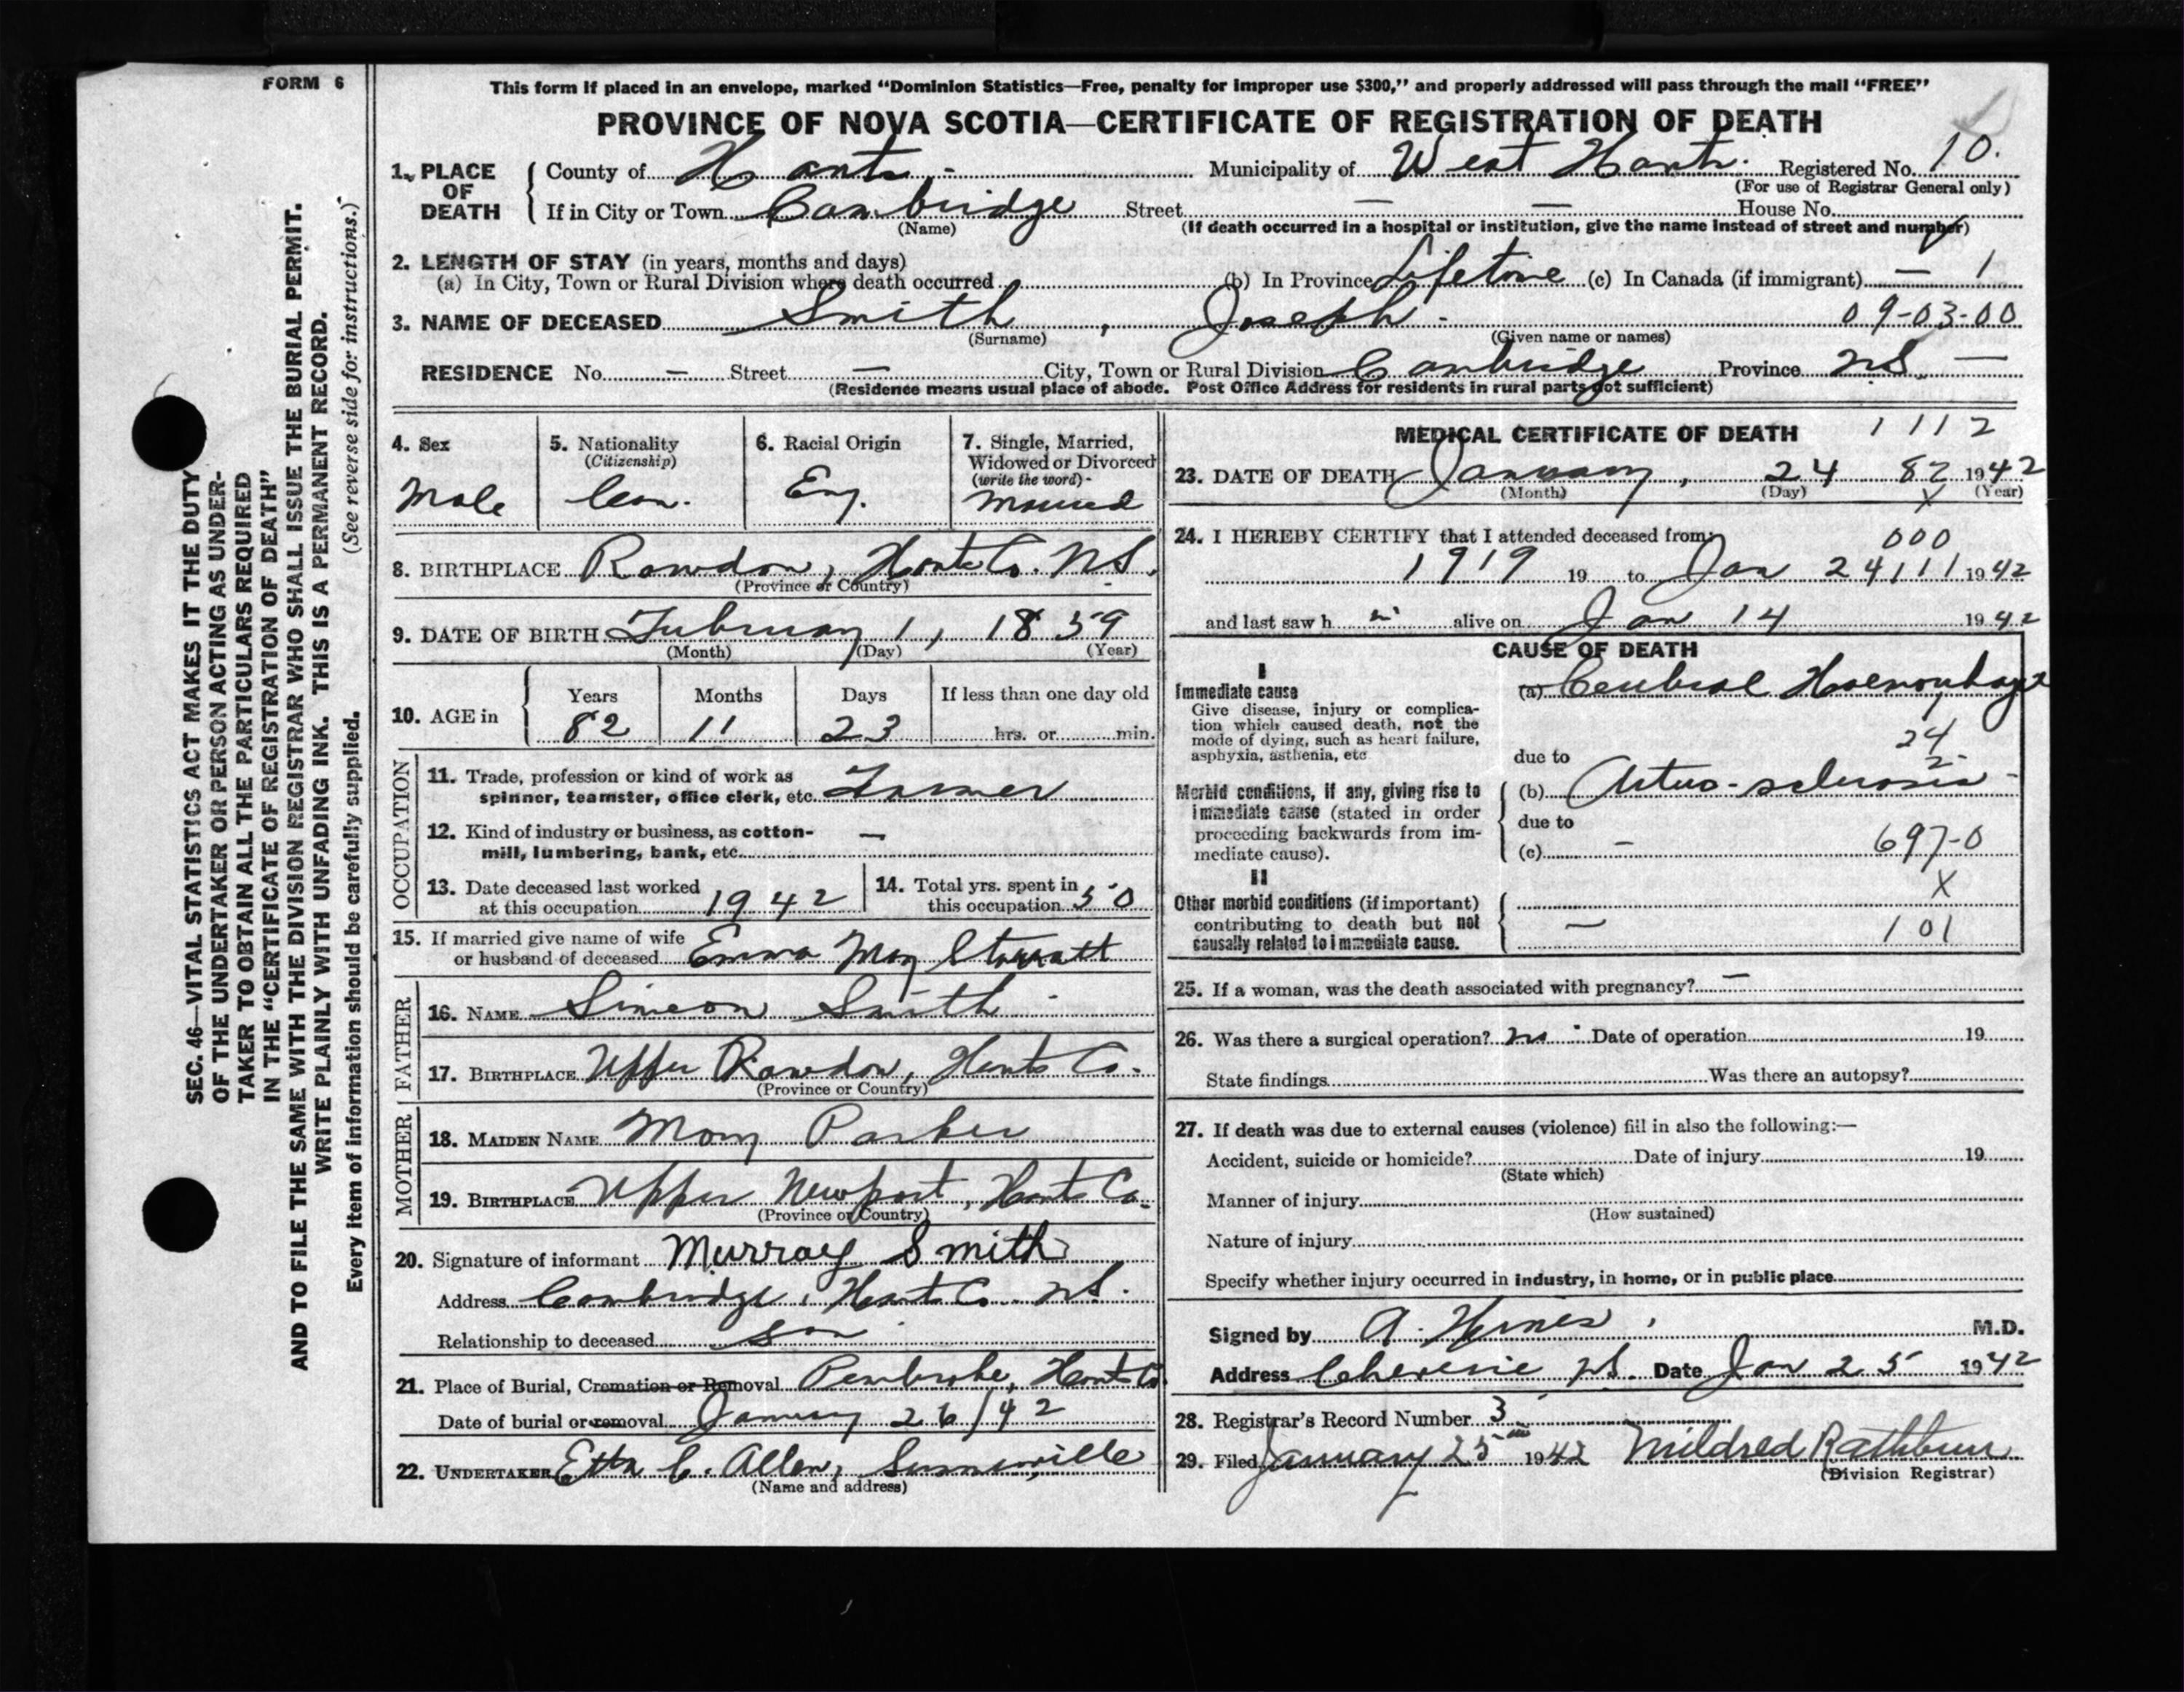 FORM 6
SEC. 46—VITAL STATISTICS ACT MAKES IT THE DUTY
OF THE UNDERTAKER OR PERSON ACTING AS UNDER-
TAKER TO OBTAIN ALL THE PARTICULARS REQUIRED
IN THE "CERTIFICATE OF REGISTRATION OF DEATH"
AND TO FILE THE SAME WITH THE DIVISION REGISTRAR WHO SHALL ISSUE THE BURIAL PERMIT.
WRITE PLAINLY WITH UNFADING INK. THIS IS A PERMANENT RECORD.
Every item of information should be carefully supplied. (See reverse side for instructions.)
This form if placed in an envelope, marked "Dominion Statistics—Free, penalty for improper use $300," and properly addressed will pass through the mail "FREE"
PROVINCE OF NOVA SCOTIA—CERTIFICATE OF REGISTRATION OF DEATH
1. PLACE OF DEATH County of Hants - Municipality of West Hants. Registered No. 10.
(For use of Registrar General only)
If in City or Town Cambridge Street — — House No.
(Name) (If death occurred in a hospital or institution, give the name instead of street and number)
2. LENGTH OF STAY (in years, months and days)
(a) In City, Town or Rural Division where death occurred (b) In Province Lifetime (c) In Canada (if immigrant) — 1
3. NAME OF DECEASED Smith , Joseph - 09-03-00
(Surname) (Given name or names)
RESIDENCE No. — Street — City, Town or Rural Division Cambridge Province N.S. —
(Residence means usual place of abode. Post Office Address for residents in rural parts not sufficient)
4. Sex 5. Nationality 6. Racial Origin 7. Single, Married,
(Citizenship) Widowed or Divorced
(write the word)
Male Can. Eng. Married
8. BIRTHPLACE Rawdon, Hants Co. N.S.
(Province or Country)
9. DATE OF BIRTH February 1, 1859
(Month) (Day) (Year)
10. AGE in Years Months Days If less than one day old
82 11 23 hrs. or min.
OCCUPATION
11. Trade, profession or kind of work as
spinner, teamster, office clerk, etc. Farmer
12. Kind of industry or business, as cotton-
mill, lumbering, bank, etc. —
13. Date deceased last worked
at this occupation 1942
14. Total yrs. spent in
this occupation 50
15. If married give name of wife
or husband of deceased Emma May Starratt
FATHER
16. NAME Simeon Smith -
17. BIRTHPLACE Upper Rawdon, Hants Co.
(Province or Country)
MOTHER
18. MAIDEN NAME Mary Parker
19. BIRTHPLACE Upper Newport, Hants Co.
(Province or Country)
20. Signature of informant Murray Smith
Address Cambridge, Hants Co. N.S.
Relationship to deceased son
21. Place of Burial, Cremation or Removal Pembroke, Hants Co.
Date of burial or removal January 26/42
22. UNDERTAKER Etta C. Allen, Summerville
(Name and address)
MEDICAL CERTIFICATE OF DEATH 1112
23. DATE OF DEATH January, 24 82 1942
(Month) (Day) X (Year)
24. I HEREBY CERTIFY that I attended deceased from:
000
1919 19 to Jan 24 111 1942
and last saw h im alive on Jan 14 1942
CAUSE OF DEATH
I
Immediate cause
Give disease, injury or complica-
tion which caused death, not the
mode of dying, such as heart failure,
asphyxia, asthenia, etc
(a) Cerebral Haemorrhage
24
2
due to
Morbid conditions, if any, giving rise to
immediate cause (stated in order
proceeding backwards from im-
mediate cause).
(b) Arterio-sclerosis -
due to
(c) — 697-0
X
II
Other morbid conditions (if important)
contributing to death but not
causally related to immediate cause.
— 101
25. If a woman, was the death associated with pregnancy? —
26. Was there a surgical operation? no Date of operation 19
State findings Was there an autopsy?
27. If death was due to external causes (violence) fill in also the following:—
Accident, suicide or homicide? Date of injury 19
(State which)
Manner of injury
(How sustained)
Nature of injury
Specify whether injury occurred in industry, in home, or in public place
Signed by A. M.D.
Address Cheverie N.S. Date Jan 25 1942
28. Registrar's Record Number 3
29. Filed January 25th 1942 Mildred Rathbun
(Division Registrar)